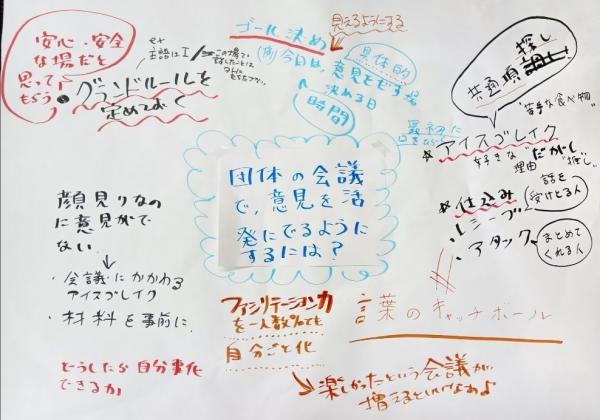 安心・安全
な場だと
思って
もらう
グランドルールを
定めておく
主語はI
ゴール決め
見えるようにする
(例)今日は、意見をだす場
具体的
決める日
時間
団体の会議
で、意見を活
発にでるように
するには？
共通項
探し
"苦手な食べ物"
最初に
アイスブレイク
好きな"だがし"
理由 "推し"
仕込み
レシーブ
話を
受けとる人
アタック
まとめて
くれる人
顔見りなの
に意見がで
ない
・会議にかかわる
アイスブレイク
・材料を事前に
どうしたら自分事化
できるか
ファシリテーション力
を一人数%でも
自分ごと化
言葉のキャッチボール
楽しかったという会議が
増えるといいよねぇ